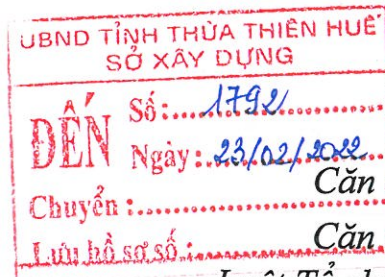 UBND TỈNH THỪA THIÊN HUẾ
SỞ XÂY DỰNG
ĐẾN
Số: 1792
Ngày: 23/02/2022
Căn
Chuyển:
Căn
Lưu hồ sơ số:
Luật Tổ